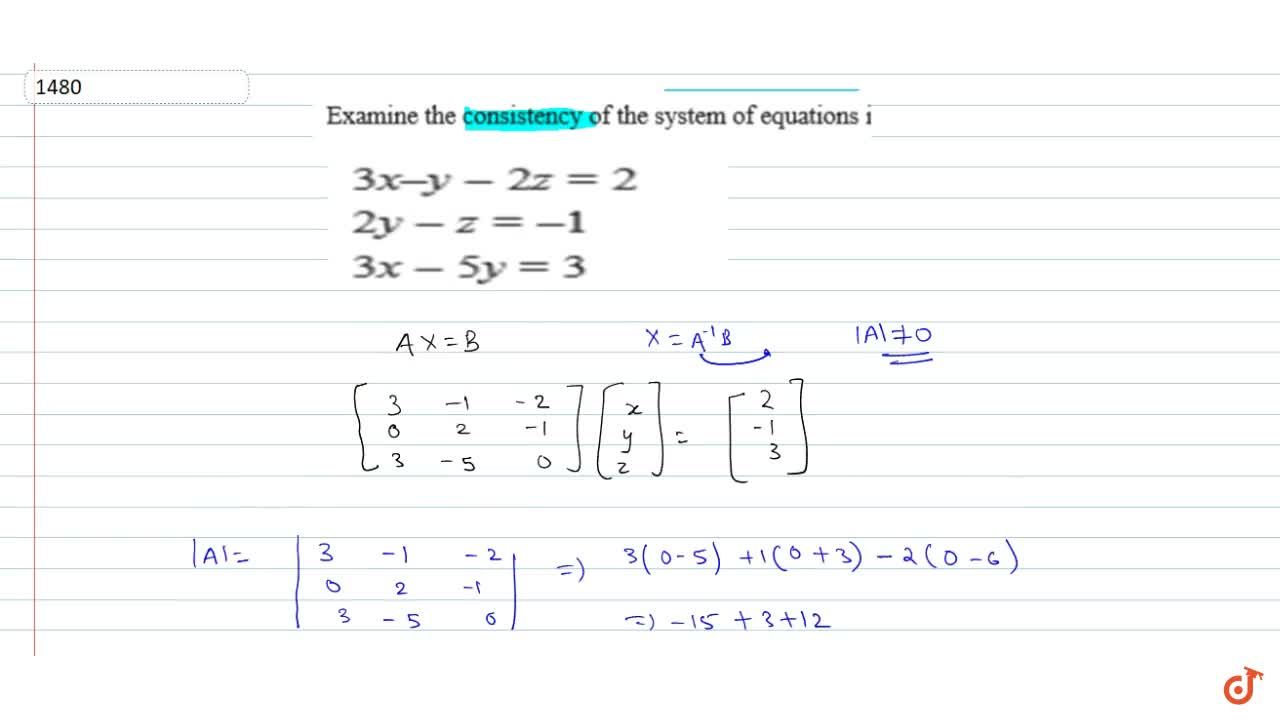 1480
Examine the consistency of the system of equations i
3x–y – 2z = 2
2y – z = –1
3x – 5y = 3
AX = B X = A⁻¹B |A| ≠ 0
[ 3 -1 -2 ] [ x ] = [ 2 ]
[ 0 2 -1 ] [ y ] [ -1 ]
[ 3 -5 0 ] [ z ] [ 3 ]
|A| = | 3 -1 -2 | => 3(0-5) +1(0+3) -2(0-6)
| 0 2 -1 |
| 3 -5 0 | => -15 +3+12